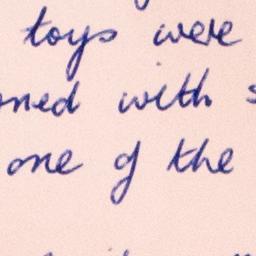 toys were
with
one of the